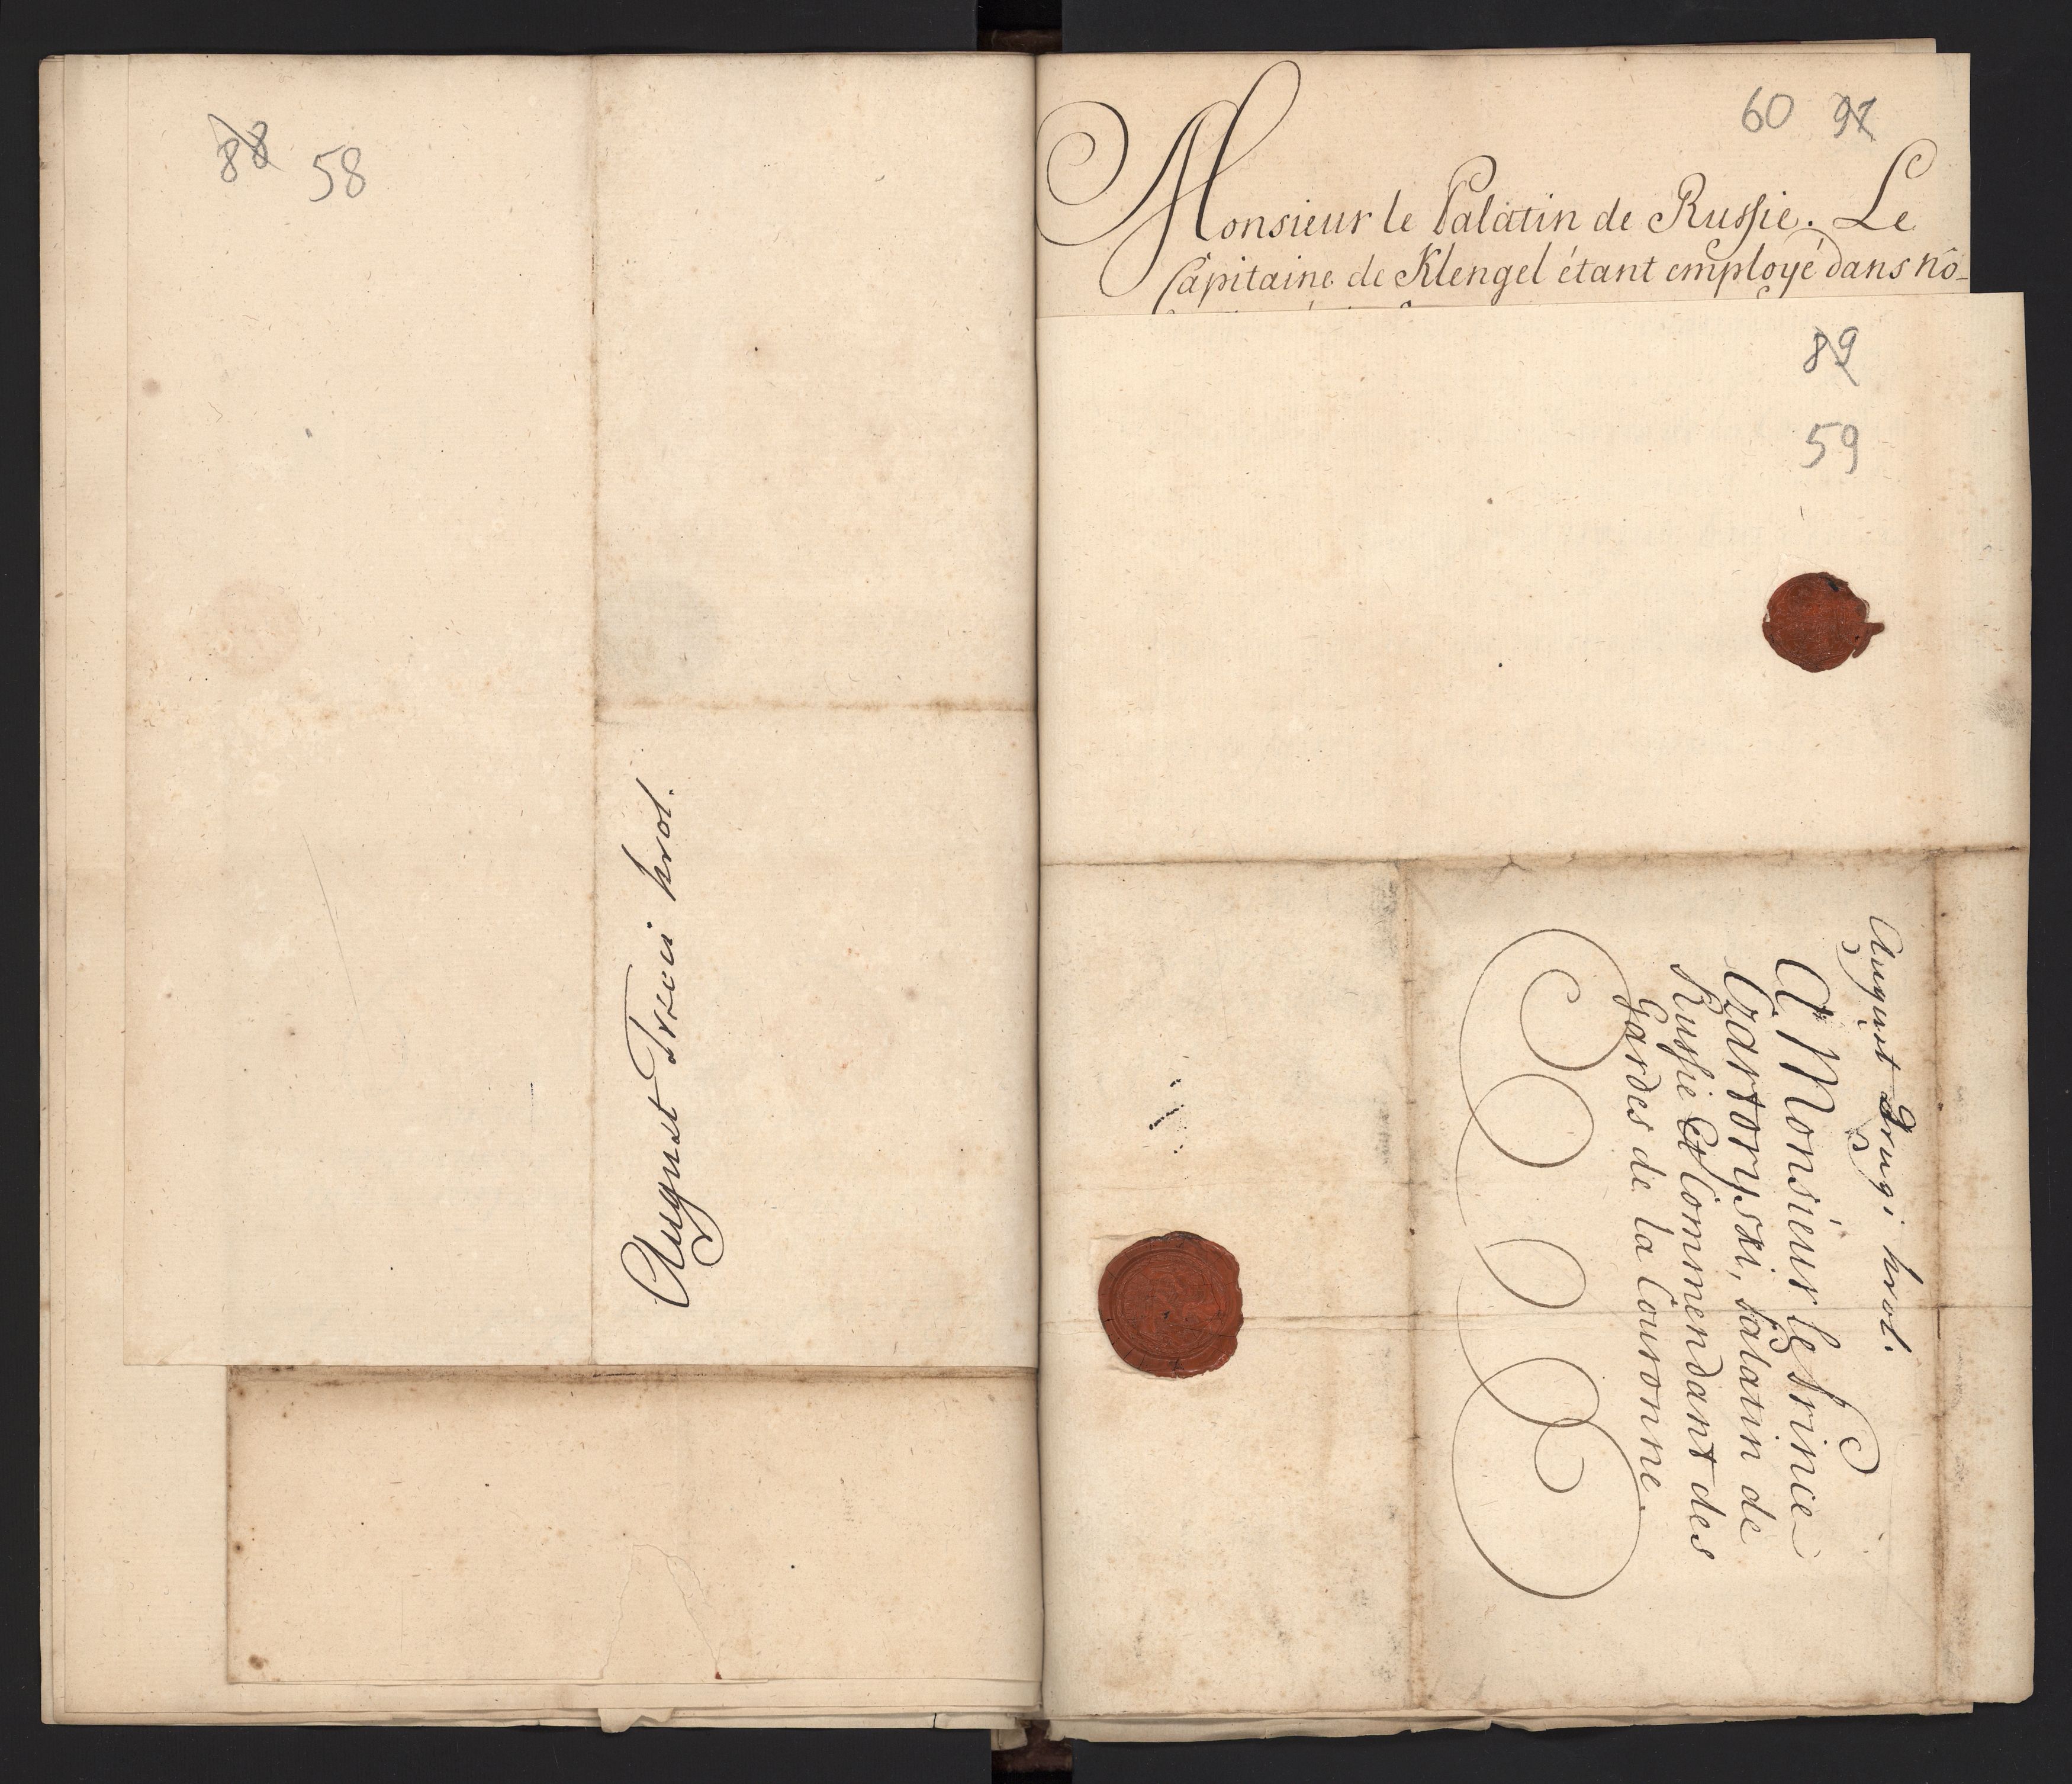 88 58
August Trzeci krol.
60 97
Monsieur le Palatin de Russie. Le
Capitaine de Klengel étant employé dans nô-
89
59
August Drugi krol.
A Monsieur le Prince
Czartoryski, Palatin de
Russie Et Commendant des
Gardes de la Couronne.